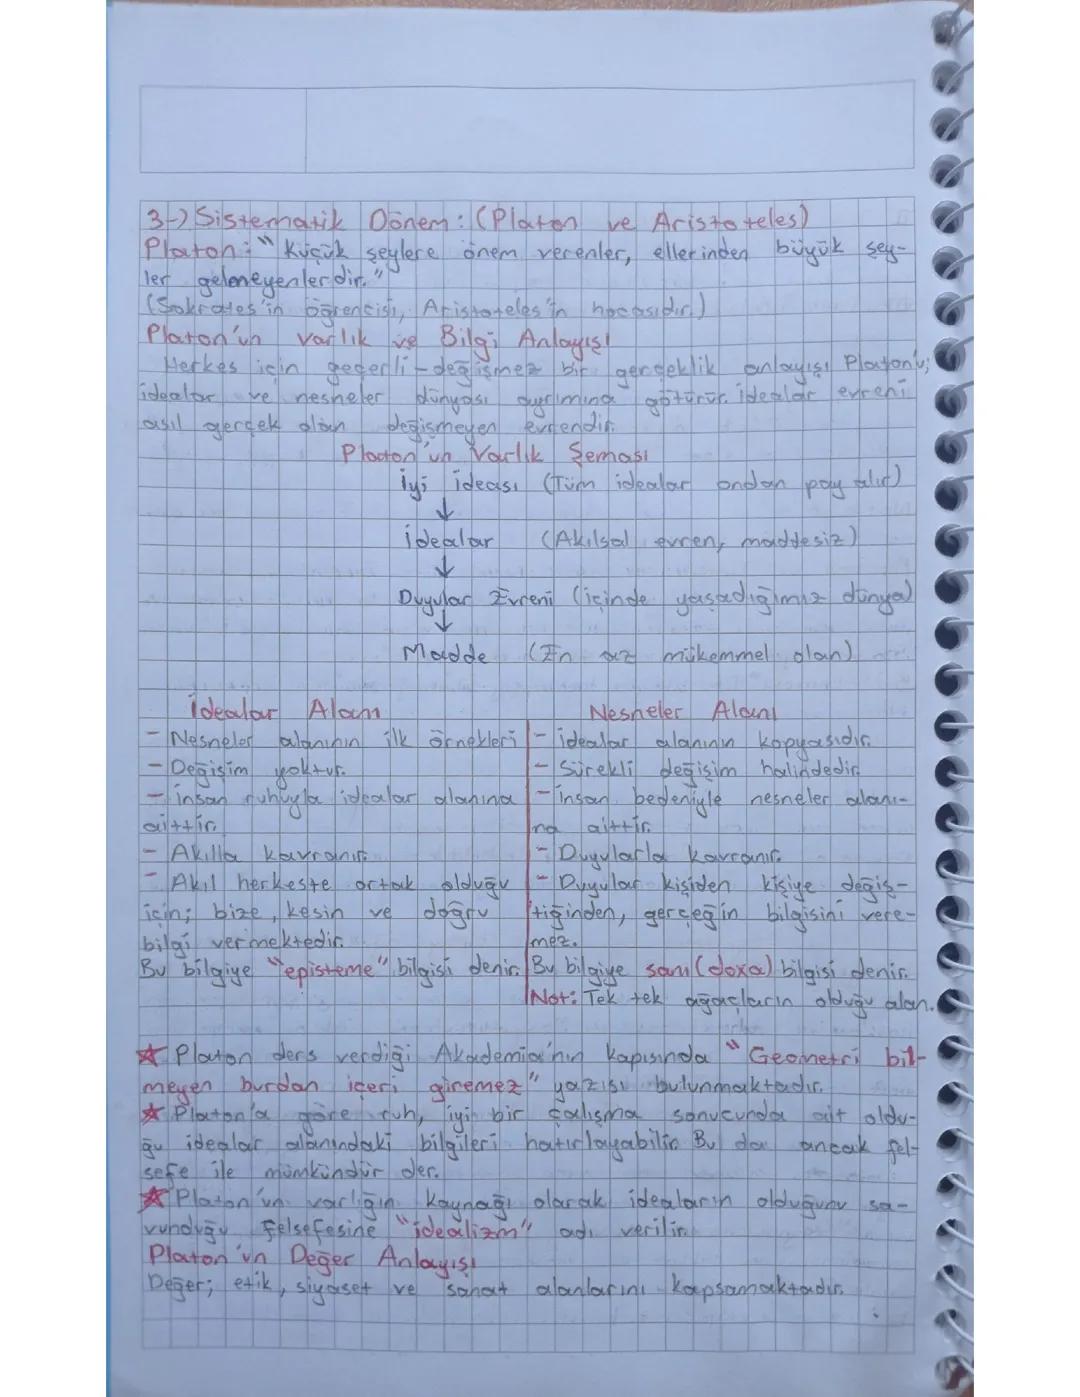 3-) Sistematik Dönem: (Platon ve Aristoteles)
Platon: "Küçük şeylere önem verenler, ellerinden büyük şey-
ler gelmeyenlerdir."
(Sokrates'in öğrencisi, Aristoteles'in hocasıdır.)
Platon'un varlık ve Bilgi Anlayışı
Herkes için geçerli-değişmez bir gerçeklik anlayışı Platon'u;
idealar ve nesneler dünyası ayrımına götürür. İdealar evreni
asıl gerçek olan değişmeyen evrendir.
Platon'un Varlık Şeması
İyi ideası (Tüm idealar ondan pay alır)
↓
İdealar (Akılsal evren, maddesiz)
↓
Duyular Evreni (içinde yaşadığımız dünya)
↓
Madde (En az mükemmel olan)
İdealar Alanı
- Nesneler alanının ilk örnekleri
- Değişim yoktur.
- İnsan ruhuyla idealar alanına
aittir.
- Akılla kavranır.
- Akıl herkeste ortak olduğu
için; bize, kesin ve doğru
bilgi vermektedir.
Bu bilgiye "episteme" bilgisi denir.
Nesneler Alanı
- İdealar alanının kopyasıdır.
- Sürekli değişim halindedir.
- İnsan bedeniyle nesneler alanı-
na aittir.
- Duyularla kavranır.
- Duyular kişiden kişiye değiş-
tiğinden, gerçeğin bilgisini vere-
mez.
Bu bilgiye sanı (doxa) bilgisi denir.
Not: Tek tek ağaçların olduğu alan.
★ Platon ders verdiği Akademia'nın kapısında "Geometri bil-
meyen burdan içeri giremez" yazısı bulunmaktadır.
★ Platon'a göre ruh, iyi bir çalışma sonucunda ait oldu-
ğu idealar alanındaki bilgileri hatırlayabilir. Bu da ancak fel-
sefe ile mümkündür der.
★ Platon'un varlığın kaynağı olarak ideaların olduğunu sa-
vunduğu felsefesine "idealizm" adı verilir.
Platon'un Değer Anlayışı
Değer; etik, siyaset ve sanat alanlarını kapsamaktadır.